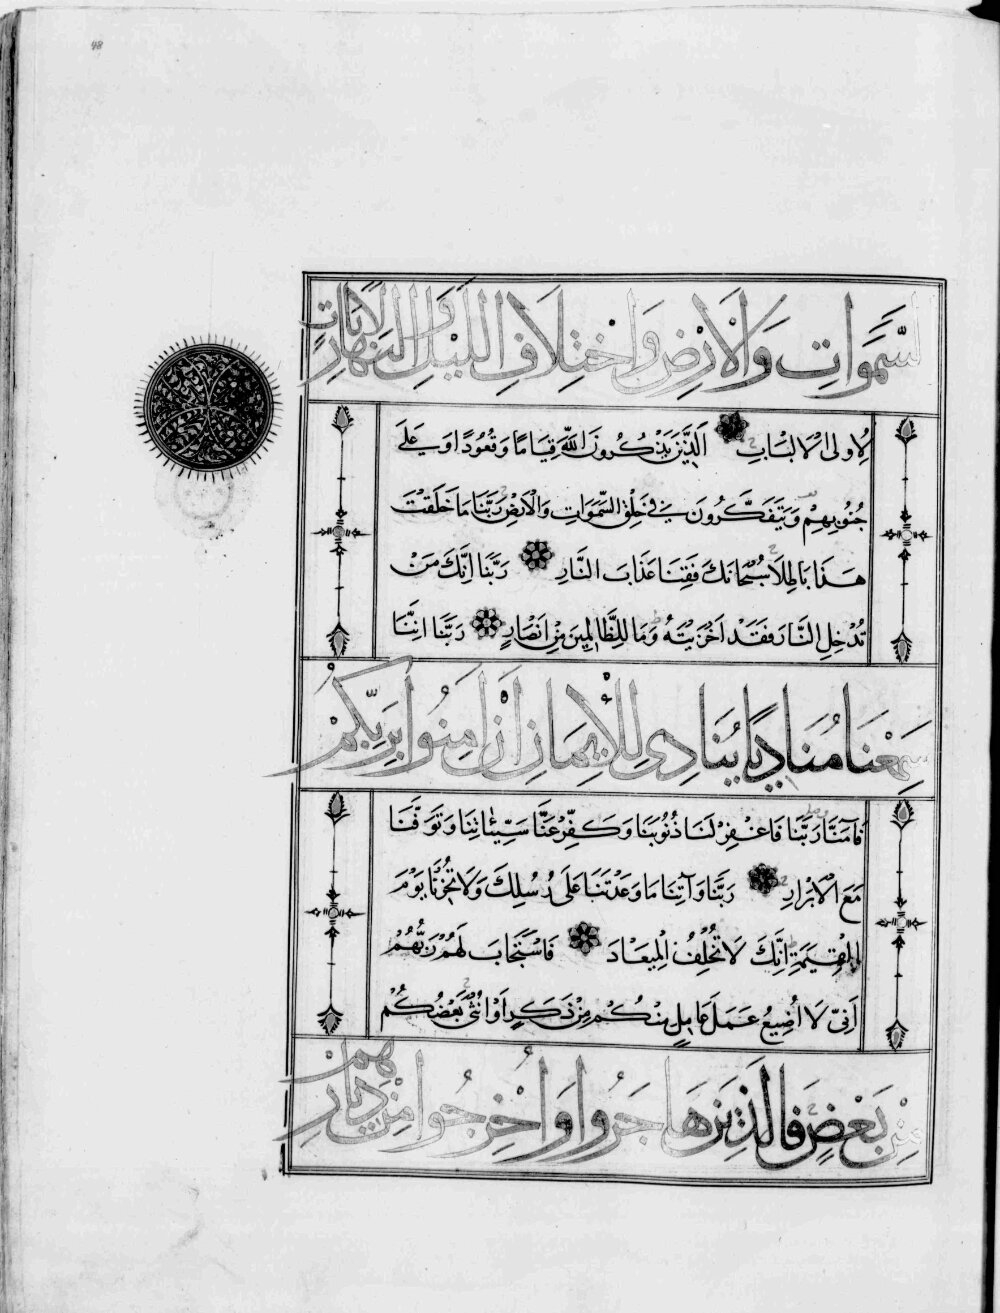 48
السَّمَوَاتِ وَالْاَرْضِ وَاخْتِلَافِ اللَّيْلِ وَالنَّهَارِ لَاٰيَاتٍ
لِاُولِى الْاَلْبَابِ اَلَّذِينَ يَذْكُرُونَ اللّٰهَ قِيَامًا وَقُعُودًا وَعَلَى
جُنُوبِهِمْ وَيَتَفَكَّرُونَ فِى خَلْقِ السَّمَوَاتِ وَالْاَرْضِ رَبَّنَا مَا خَلَقْتَ
هَذَا بَاطِلًا سُبْحَانَكَ فَقِنَا عَذَابَ النَّارِ رَبَّنَا اِنَّكَ مَنْ
تُدْخِلِ النَّارَ فَقَدْ اَخْزَيْتَهُ وَمَا لِلظَّالِمِينَ مِنْ اَنْصَارٍ رَبَّنَا اِنَّنَا
سَمِعْنَا مُنَادِيًا يُنَادِى لِلْاِيمَانِ اَنْ اٰمِنُوا بِرَبِّكُمْ
فَاٰمَنَّا رَبَّنَا فَاغْفِرْ لَنَا ذُنُوبَنَا وَكَفِّرْ عَنَّا سَيِّئَاتِنَا وَتَوَفَّنَا
مَعَ الْاَبْرَارِ رَبَّنَا وَاٰتِنَا مَا وَعَدْتَنَا عَلَى رُسُلِكَ وَلَا تُخْزِنَا يَوْمَ
الْقِيٰمَةِ اِنَّكَ لَا تُخْلِفُ الْمِيعَادَ فَاسْتَجَابَ لَهُمْ رَبُّهُمْ
اَنِّى لَا اُضِيعُ عَمَلَ عَامِلٍ مِنْكُمْ مِنْ ذَكَرٍ اَوْ اُنْثَى بَعْضُكُمْ
مِنْ بَعْضٍ فَالَّذِينَ هَاجَرُوا وَاُخْرِجُوا مِنْ دِيَارِهِمْ